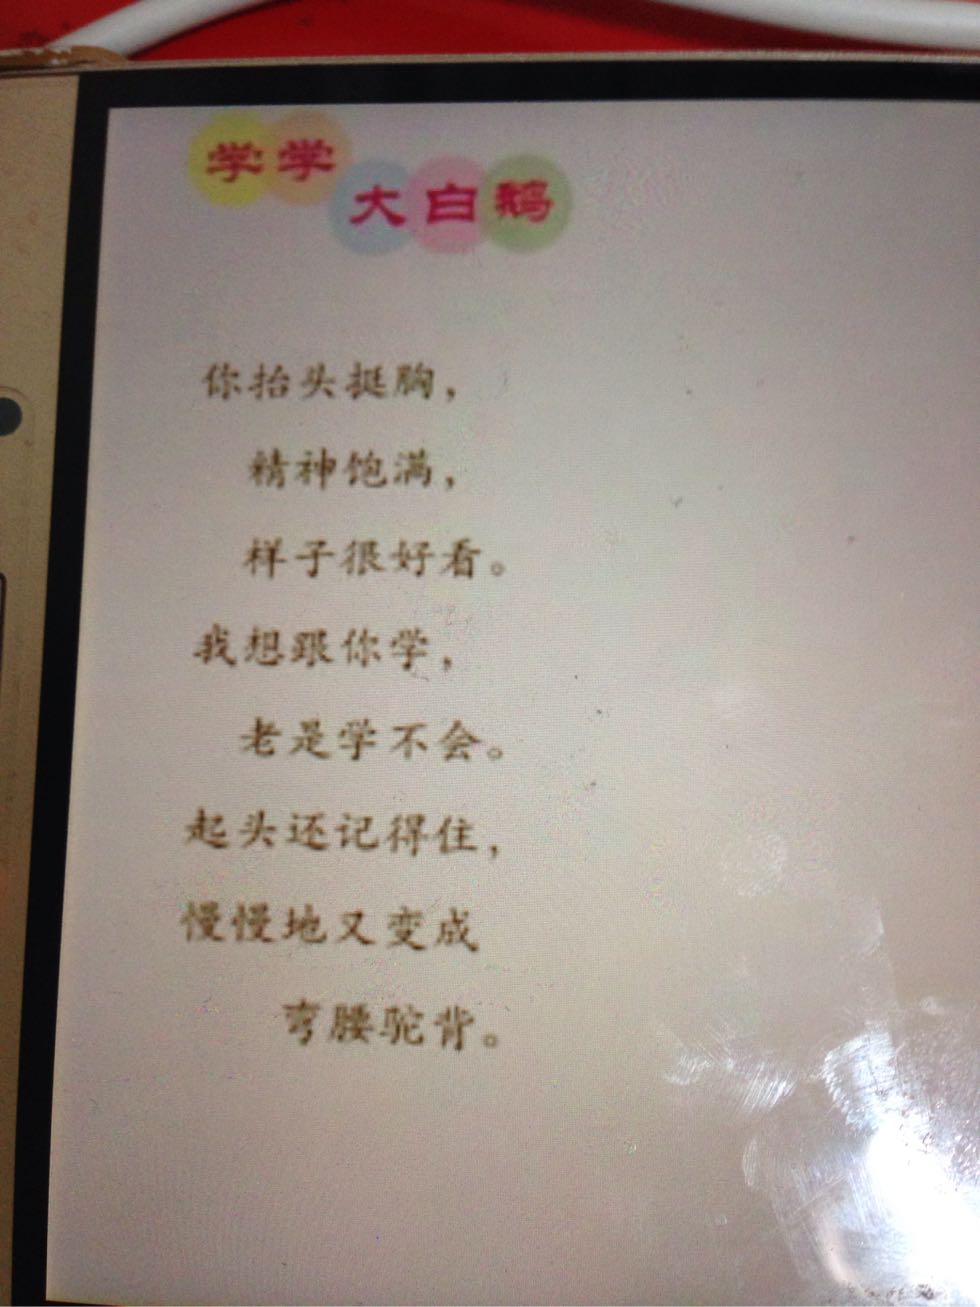 学学
大白鹅
你抬头挺胸，
精神饱满，
样子很好看。
我想跟你学，
老是学不会。
起头还记得住，
慢慢地又变成
弯腰驼背。